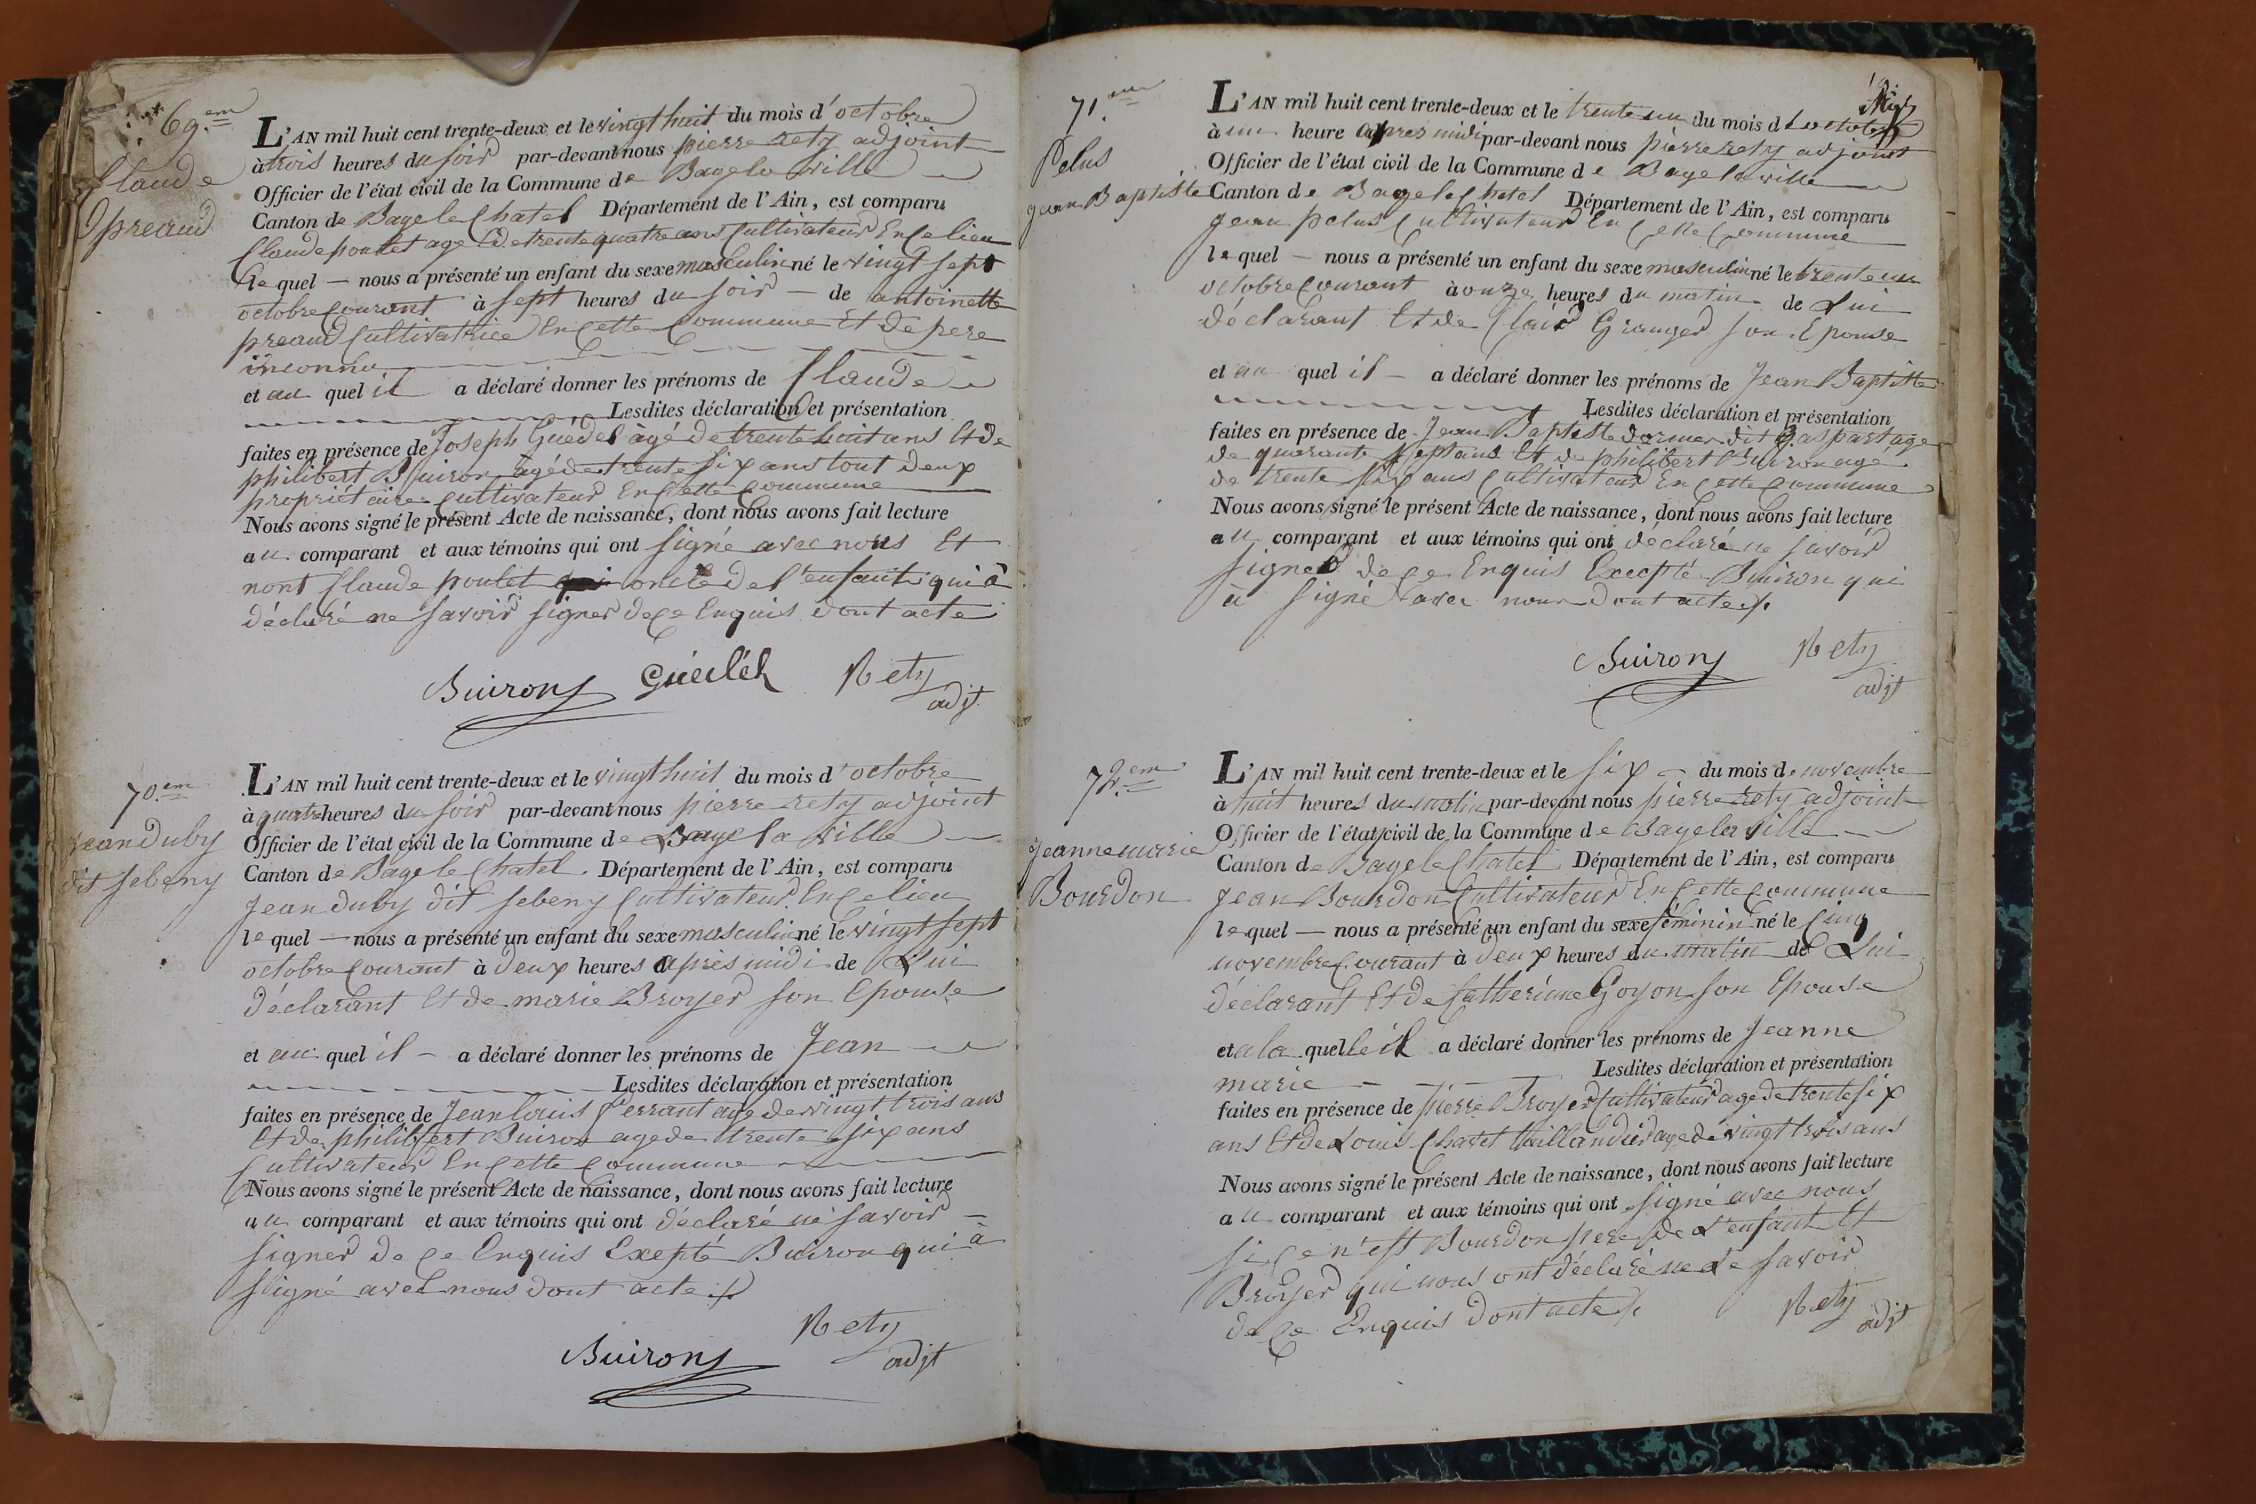 69.em
Claude
preaud
L'AN mil huit cent trente-deux et le vingt huit du mois d'octobre
à trois heures du soir par-devant nous pierre rety adjoint
Officier de l'état civil de la Commune de Bage la ville
Canton de Bage le Chatel Département de l'Ain, est comparu
Claude poulet agé de trente quatre ans Cultivateur En ce lieu
le quel — nous a présenté un enfant du sexe masculin né le vingt sept
octobre courant à sept heures du soir — de antoinette
preaud Cultivatrice En cette Commune et de pere
inconnu
et au quel il a déclaré donner les prénoms de Claude
Lesdites déclaration et présentation
faites en présence de Joseph Guédel àgé de trente huit ans Et de
philibert Buiron agé de trente six ans tout deux
propriétaires Cultivateur En Cette Commune
Nous avons signé le présent Acte de naissance, dont nous avons fait lecture
au comparant et aux témoins qui ont signé avec nous Et
nont Claude poulet oncle de l'enfant qui à
déclaré ne savoir signer de ce Enquis dont acte
Buiron Guédel Rety
adjt
70.em
jean duby
dit sebeny
L'AN mil huit cent trente-deux et le vingt huit du mois d'octobre
à quatre heures du soir par-devant nous pierre rety adjoint
Officier de l'état civil de la Commune de Bage la ville
Canton de Bage le Chatel. Département de l'Ain, est comparu
Jean duby dit sebeny Cultivateur En ce lieu
le quel — nous a présenté un enfant du sexe masculin né le vingt sept
octobre courant à deux heures après midi de Lui
déclarant Et de marie Broyer son Epouse
et au quel il — a déclaré donner les prénoms de Jean
Lesdites déclaration et présentation
faites en présence de Jean louis ferrant age de vingt trois ans
Et de philibert Buiron age de trente six ans
Cultivateur En cette Commune
Nous avons signé le présent Acte de naissance, dont nous avons fait lecture
au comparant et aux témoins qui ont déclaré ne savoir
signer de ce Enquis Excepté Buiron qui à
signé avec nous dont acte
Rety
Buiron adjt
71.em
Pelus
jean Baptiste
L'AN mil huit cent trente-deux et le trente un du mois d octobre
à un heure après midi par-devant nous pierre rety adjoint
Officier de l'état civil de la Commune de Bage la ville
Canton de Bage le Chatel Département de l'Ain, est comparu
jean pelus Cultivateur En Cette Commune
le quel — nous a présenté un enfant du sexe masculin né le trente un
octobre courant à onze heures du matin de Lui
déclarant Et de Clair Granger son Epouse
et au quel il — a déclaré donner les prénoms de Jean Baptiste
Lesdites déclaration et présentation
faites en présence de Jean Baptiste dormer dit gaspart age
de quarante sept ans Et de philibert Buiron agé
de trente six ans Cultivateur En Cette Commune
Nous avons signé le présent Acte de naissance, dont nous avons fait lecture
au comparant et aux témoins qui ont déclaré ne savoir
signer de ce Enquis Excepté Buiron qui
à signé avec nous dont acte
Buiron Rety
adjt
72.em
Jeanne marie
Bourdon
L'AN mil huit cent trente-deux et le six du mois de novembre
à huit heures du matin par-devant nous pierre rety adjoint
Officier de l'état civil de la Commune de Bage la ville
Canton de Bage le Chatel Département de l'Ain, est comparu
Jean Bourdon Cultivateur En Cette Commune
le quel — nous a présenté un enfant du sexe féminin né le Cinq
novembre courant à deux heures du matin de Lui
déclarant Et de Catherinne Goyon son Epouse
et a la quelle il a déclaré donner les prénoms de Jeanne
marie Lesdites déclaration et présentation
faites en présence de pierre Broyer Cultivateur age de trente six
ans Et de Louis Chatel taillandier age de vingt trois ans
Nous avons signé le présent Acte de naissance, dont nous avons fait lecture
au comparant et aux témoins qui ont signé avec nous
si ce n'est Bourdon pere de L'enfant Et
Broyer qui nous ont déclaré ne Le savoir
de ce Enquis dont acte Rety
adjt